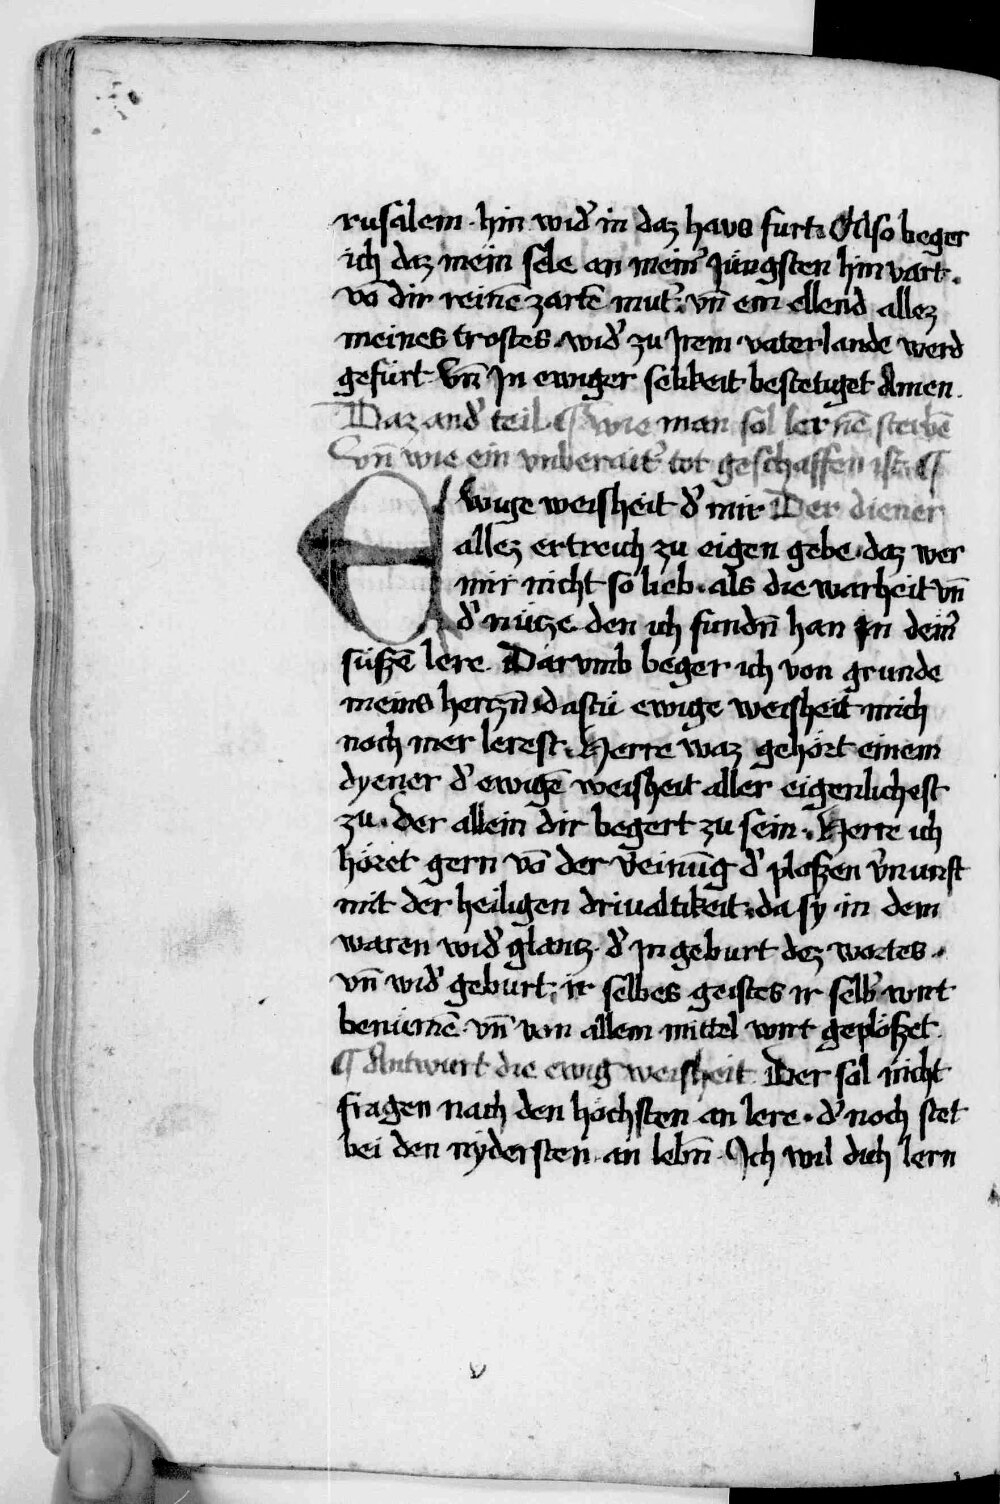 rusalem · hin wid̕ in daz haus furt · Also beger
ich daz mein sele an mein̕ jüngsten hinvart ·
vō dir reinē zartē mut̕ · vn̄ ein ellend allez
meines trostes · wid̕ zu irem vaterlande werd
gefürt Vn̄ In ewiger selikeit bestetiget Amen ·
Daz and̕ teil ¶ wie man sol lernē sterbē
Vn̄ wie ein vnberait̕ tot geschaffen ist ¶
Ewige weisheit d̕ mir Der diener
allez ertreich zu eigen gebe · daz wer
mir nicht so lieb · als die warheit vn̄
d̕ nütze den ich fundn̄ han In dein̕
süszē lere Darvmb beger ich von grunde
meins hertzn̄ dastü ewige weisheit mich
noch mer lerest · Herre waz gehört einem
dyener d̕ ewigē weisheit aller eigenlichest
zu · der allein dir begert zu sein · Herre ich
höret gern vō der v̕einūg d̕ ploszen v̕nunst
mit der heiligen driualtikeit · da sy in dem
waren wid̕glantz · d̕ Ingeburt dez wortes ·
vn̄ wid̕ geburt · ir selbes geistes ir selb̕ wirt
benümē · vn̄ von allem mittel wirt geplöszet
¶ Antwurt die ewig weisheit Der sol nicht
fragen nach den höchsten an lere · d̕ noch stet
bei den nydersten · an lebn̄ · Ich wil dich lern